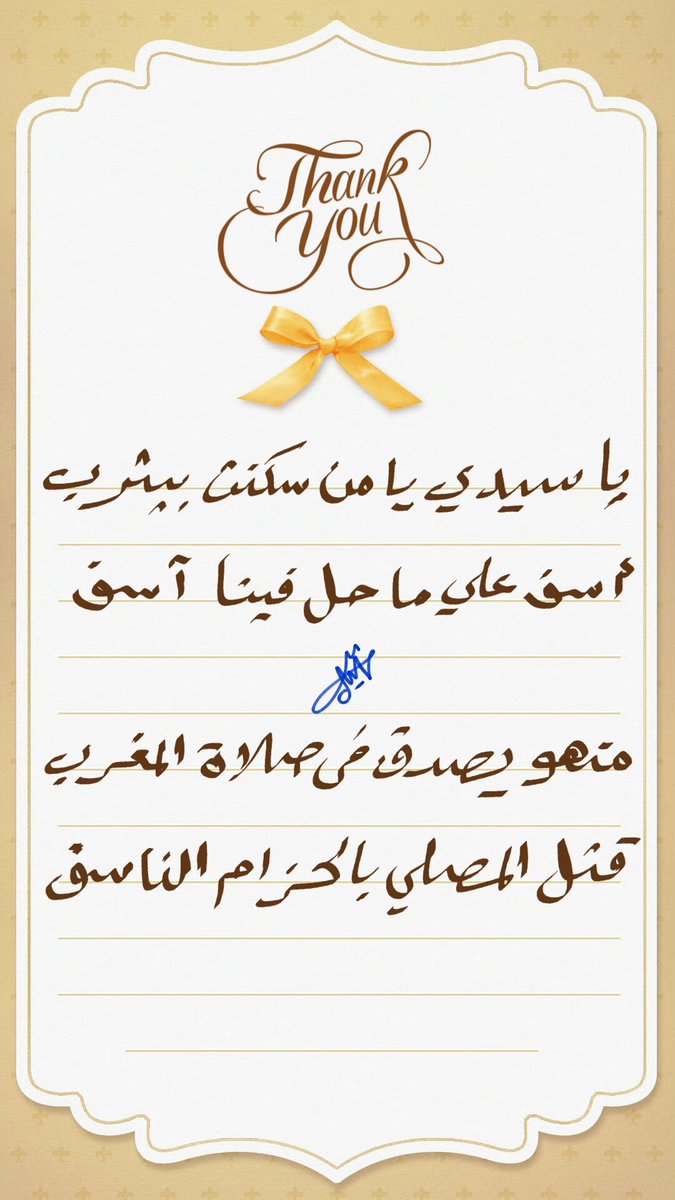 Thank
You
يا سيدي يا من سكنت بيثرب
أسف علي ما حل فينا آسف
منهو يصدق في صلاة المغرب
قتل المصلي بالحزام الناسف